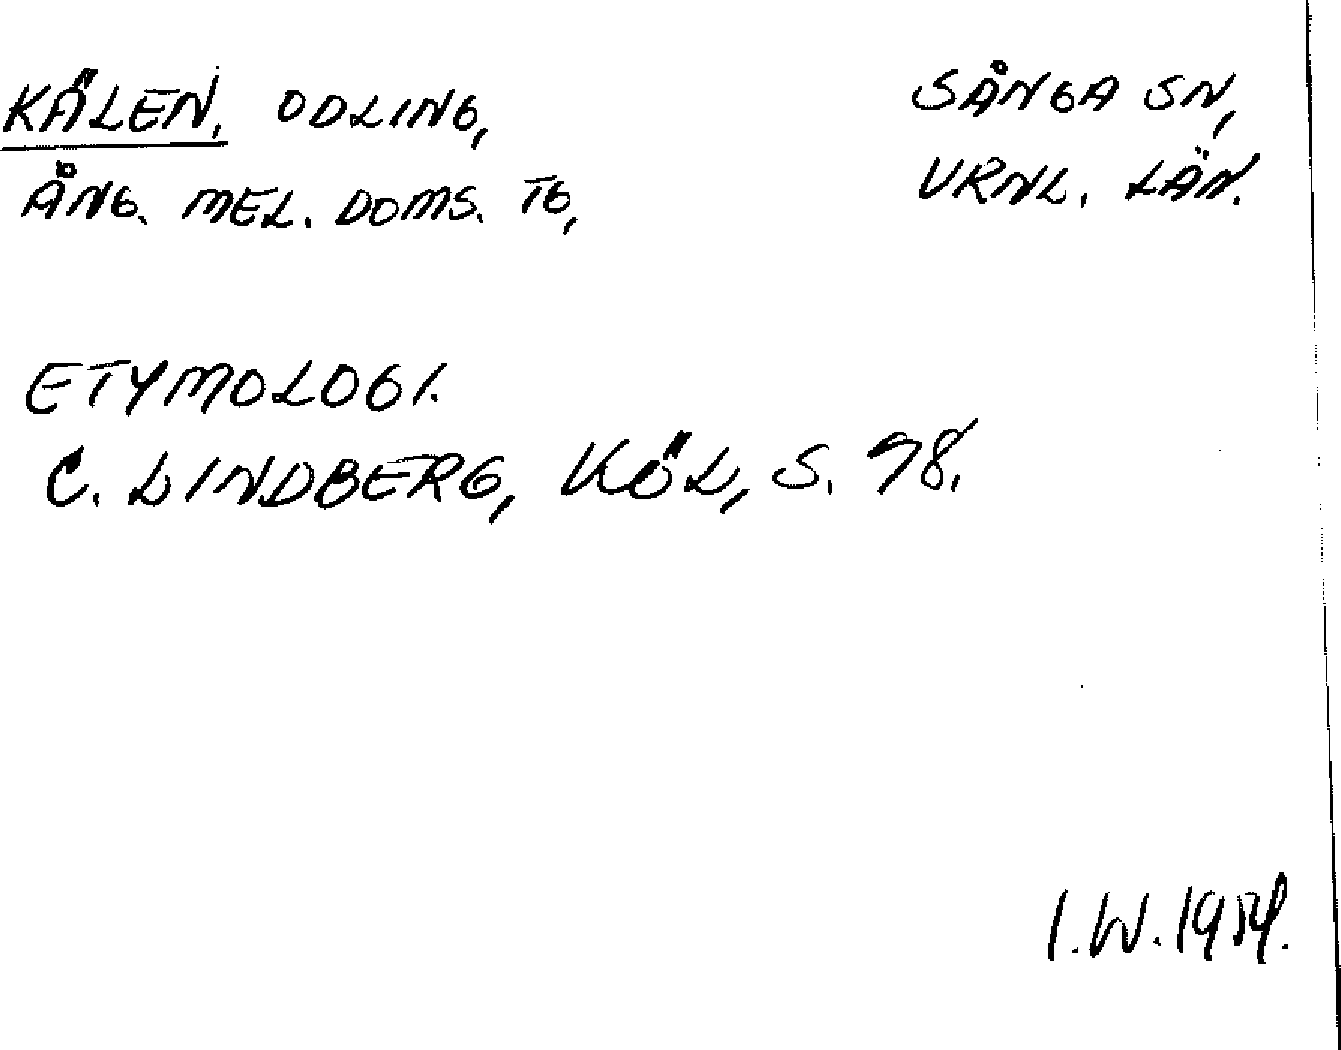 KÄLEN, ODLING,
ÅNG. MEL. DOMS. TG,
SÅNGA SN,
VRNL. LÄN.
ETYMOLOGI.
C. LINDBERG, KÖL, S. 98.
I.W. 1954.